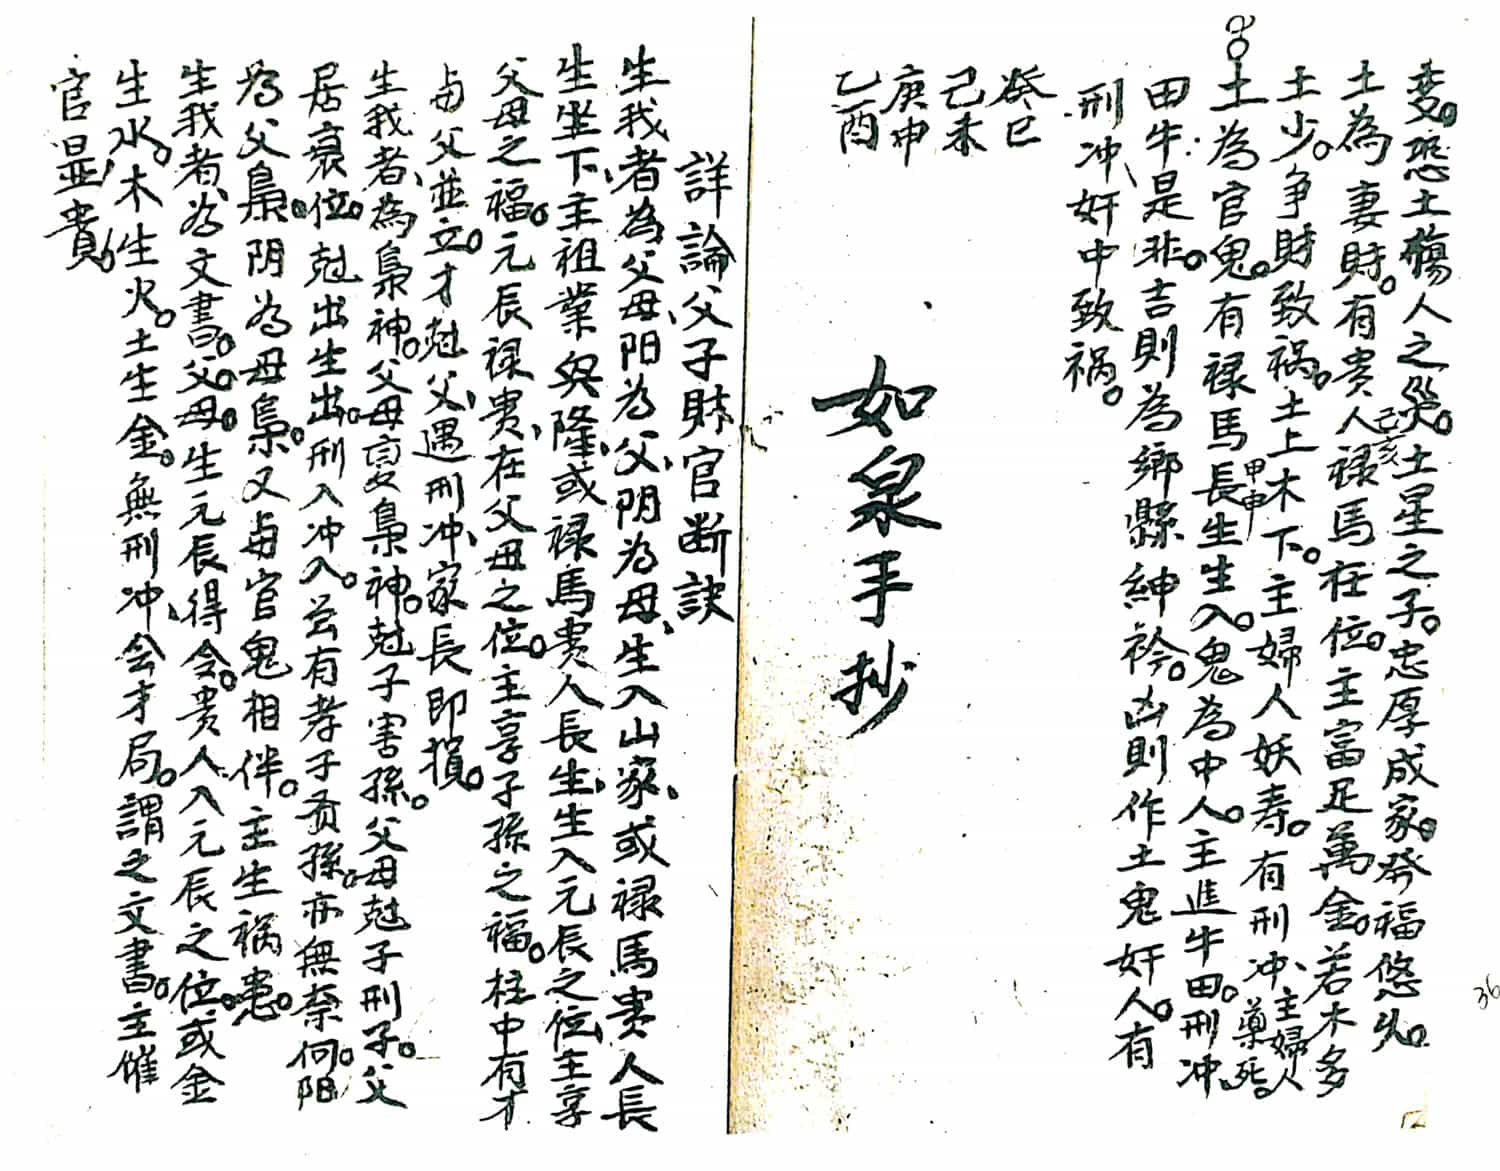 変。恐土傷人之災。土星之子。忠厚成家。發福悠久。
土為妻財。有贵人禄馬在位。主富足萬金。若木多
己亥
土少。争財致祸。土上木下。主婦人妖寿。有刑冲、主婦人藥死。
甲申
土為官鬼。有禄馬長生生入。鬼為中人。主進牛田。刑冲、
田牛是非。吉則為鄉縣紳衿。凶則作土鬼奸人。有
刑冲、奸中致祸。
癸巳
己未
庚申
乙酉
如泉手抄
詳論父子財官断訣
生我者為父母、阳為父、阴為母、生入山家、或禄馬贵人長
生坐下、主祖業興隆、或禄馬贵人長生、生入元辰之位、主享
父母之福。元辰禄贵、在父母之位。主享子孫之福。柱中有才
與父並立。才尅父、遇刑冲、家長即損。
生我者、為梟神。父母変梟神。尅子害孫。父母尅子刑子。父
居衰位。尅出生出。刑入冲入。芸有孝子贤孫。亦無奈何。阳
為父梟。阴為母梟。又與官鬼相伴。主生祸患。
生我者、為文書。父母。生元辰得令。贵人入元辰之位。或金
生水。木生火。土生金。無刑冲、会才局。謂之文書。主催
官显贵
36